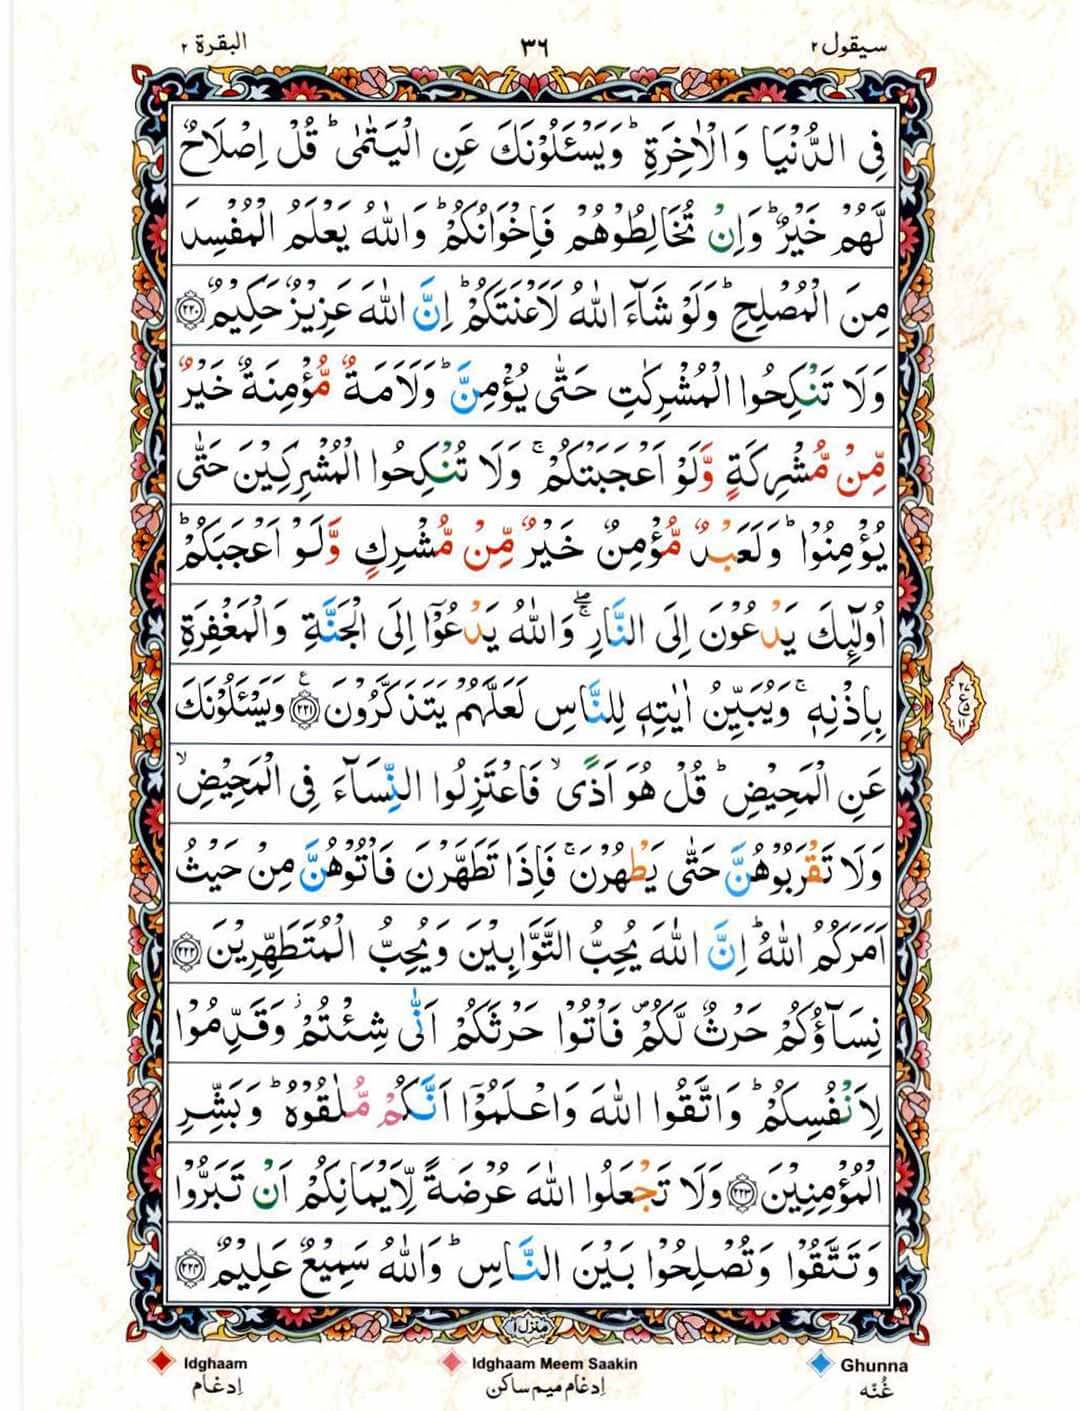 سيقول ٢ ٣٦ البقرة ٢
فِى الدُّنْيَا وَالْاٰخِرَةِ ؕ وَيَسْـَٔلُوْنَكَ عَنِ الْيَتٰمٰى ؕ قُلْ اِصْلَاحٌ
لَّهُمْ خَيْرٌ ؕ وَاِنْ تُخَالِطُوْهُمْ فَاِخْوَانُكُمْ ؕ وَاللّٰهُ يَعْلَمُ الْمُفْسِدَ
مِنَ الْمُصْلِحِ ؕ وَلَوْ شَآءَ اللّٰهُ لَاَعْنَتَكُمْ ؕ اِنَّ اللّٰهَ عَزِيْزٌ حَكِيْمٌ ﴿٢٢٠﴾
وَلَا تَنْكِحُوا الْمُشْرِكٰتِ حَتّٰى يُؤْمِنَّ ؕ وَلَاَمَةٌ مُّؤْمِنَةٌ خَيْرٌ
مِّنْ مُّشْرِكَةٍ وَّلَوْ اَعْجَبَتْكُمْ ۚ وَلَا تُنْكِحُوا الْمُشْرِكِيْنَ حَتّٰى
يُؤْمِنُوْا ؕ وَلَعَبْدٌ مُّؤْمِنٌ خَيْرٌ مِّنْ مُّشْرِكٍ وَّلَوْ اَعْجَبَكُمْ ؕ
اُولٰٓئِكَ يَدْعُوْنَ اِلَى النَّارِ ۖۚ وَاللّٰهُ يَدْعُوْٓا اِلَى الْجَنَّةِ وَالْمَغْفِرَةِ
بِاِذْنِهٖ ۚ وَيُبَيِّنُ اٰيٰتِهٖ لِلنَّاسِ لَعَلَّهُمْ يَتَذَكَّرُوْنَ ﴿٢٢١﴾ ع وَيَسْـَٔلُوْنَكَ
عَنِ الْمَحِيْضِ ؕ قُلْ هُوَ اَذًى ۙ فَاعْتَزِلُوا النِّسَآءَ فِى الْمَحِيْضِ ۙ
وَلَا تَقْرَبُوْهُنَّ حَتّٰى يَطْهُرْنَ ۚ فَاِذَا تَطَهَّرْنَ فَاْتُوْهُنَّ مِنْ حَيْثُ
اَمَرَكُمُ اللّٰهُ ؕ اِنَّ اللّٰهَ يُحِبُّ التَّوَّابِيْنَ وَيُحِبُّ الْمُتَطَهِّرِيْنَ ﴿٢٢٢﴾
نِسَآؤُكُمْ حَرْثٌ لَّكُمْ ۪ فَاْتُوْا حَرْثَكُمْ اَنّٰى شِئْتُمْ ؗ وَقَدِّمُوْا
لِاَنْفُسِكُمْ ؕ وَاتَّقُوا اللّٰهَ وَاعْلَمُوْٓا اَنَّكُمْ مُّلٰقُوْهُ ؕ وَبَشِّرِ
الْمُؤْمِنِيْنَ ﴿٢٢٣﴾ وَلَا تَجْعَلُوا اللّٰهَ عُرْضَةً لِّاَيْمَانِكُمْ اَنْ تَبَرُّوْا
وَتَتَّقُوْا وَتُصْلِحُوْا بَيْنَ النَّاسِ ؕ وَاللّٰهُ سَمِيْعٌ عَلِيْمٌ ﴿٢٢٤﴾
منزل ١
Idghaam Idghaam Meem Saakin Ghunna
اِدغام اِدغام ميم ساكن غُنّه